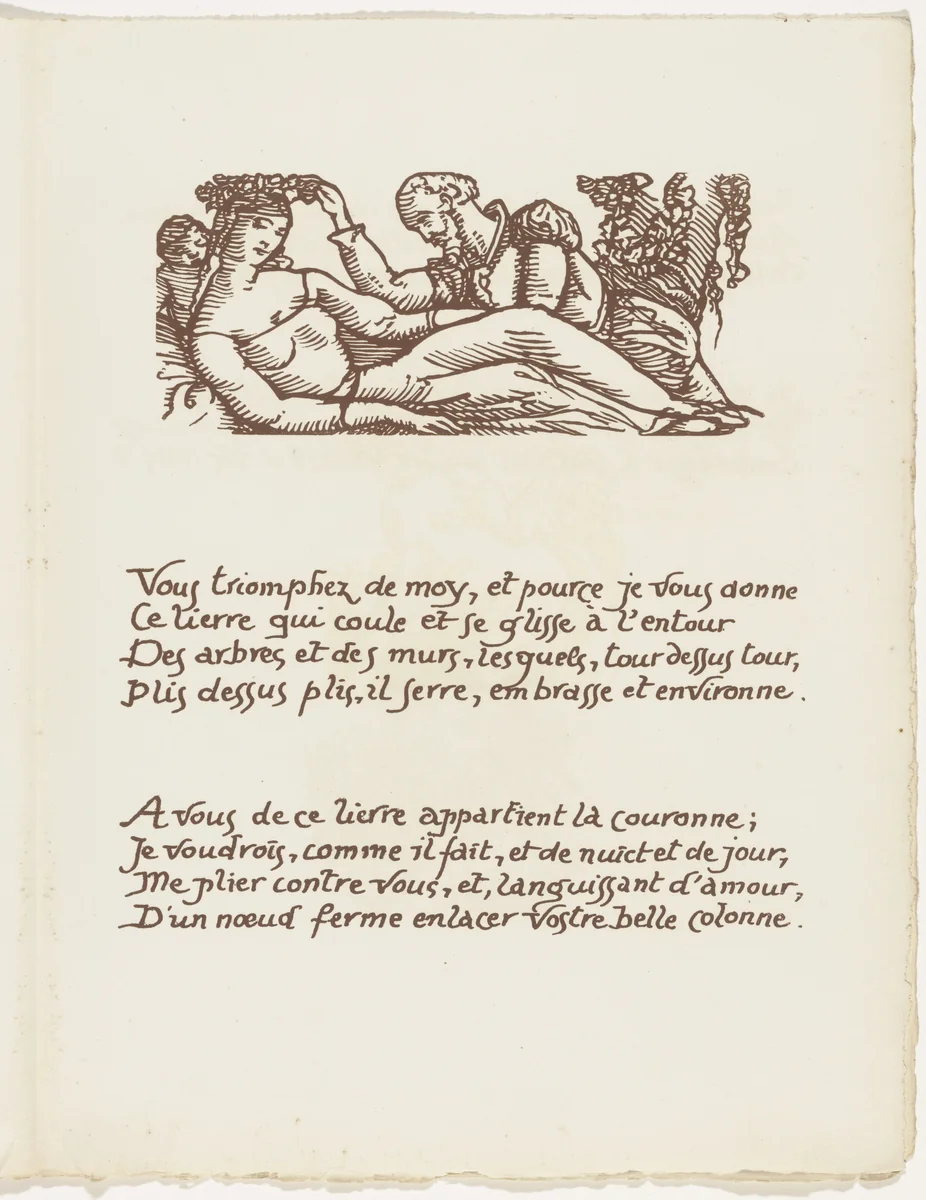 Vous triomphez de moy, et pource je vous donne
Ce lierre qui coule et se glisse à l'entour
Des arbres et des murs, lesquels, tour dessus tour,
Plis dessus plis, il serre, embrasse et environne.
A vous de ce lierre appartient la couronne;
Je voudrois, comme il fait, et de nuict et de jour,
Me plier contre vous, et, languissant d'amour,
D'un nœud ferme enlacer vostre belle colonne.